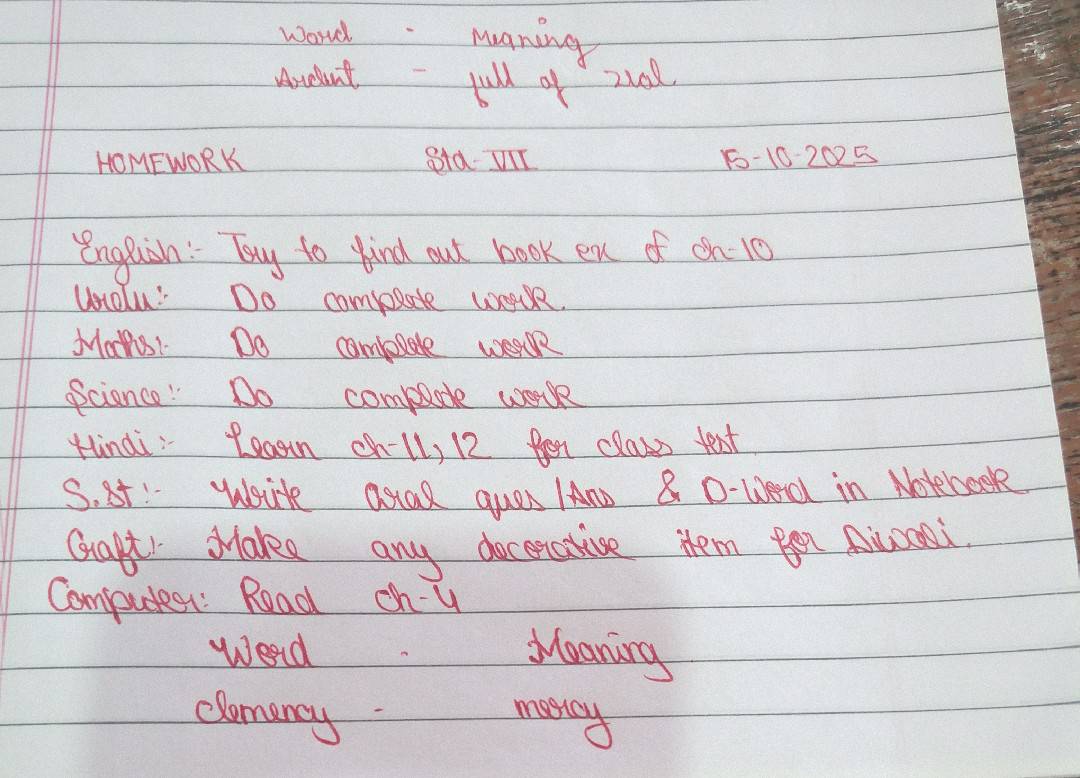 Word - Meaning
Ardent - full of zeal
HOMEWORK Std-VII 15-10-2025
English:- Try to find out book ex of ch-10
Urdu:- Do complete work.
Maths:- Do complete work
Science:- Do complete work
Hindi:- Learn ch-11, 12 for class test
S.St:- Write oral ques/Ans & D-Word in Notebook
Craft:- Make any decorative item for Diwali.
Computer: Read ch-4
Word - Meaning
Clemency - mercy